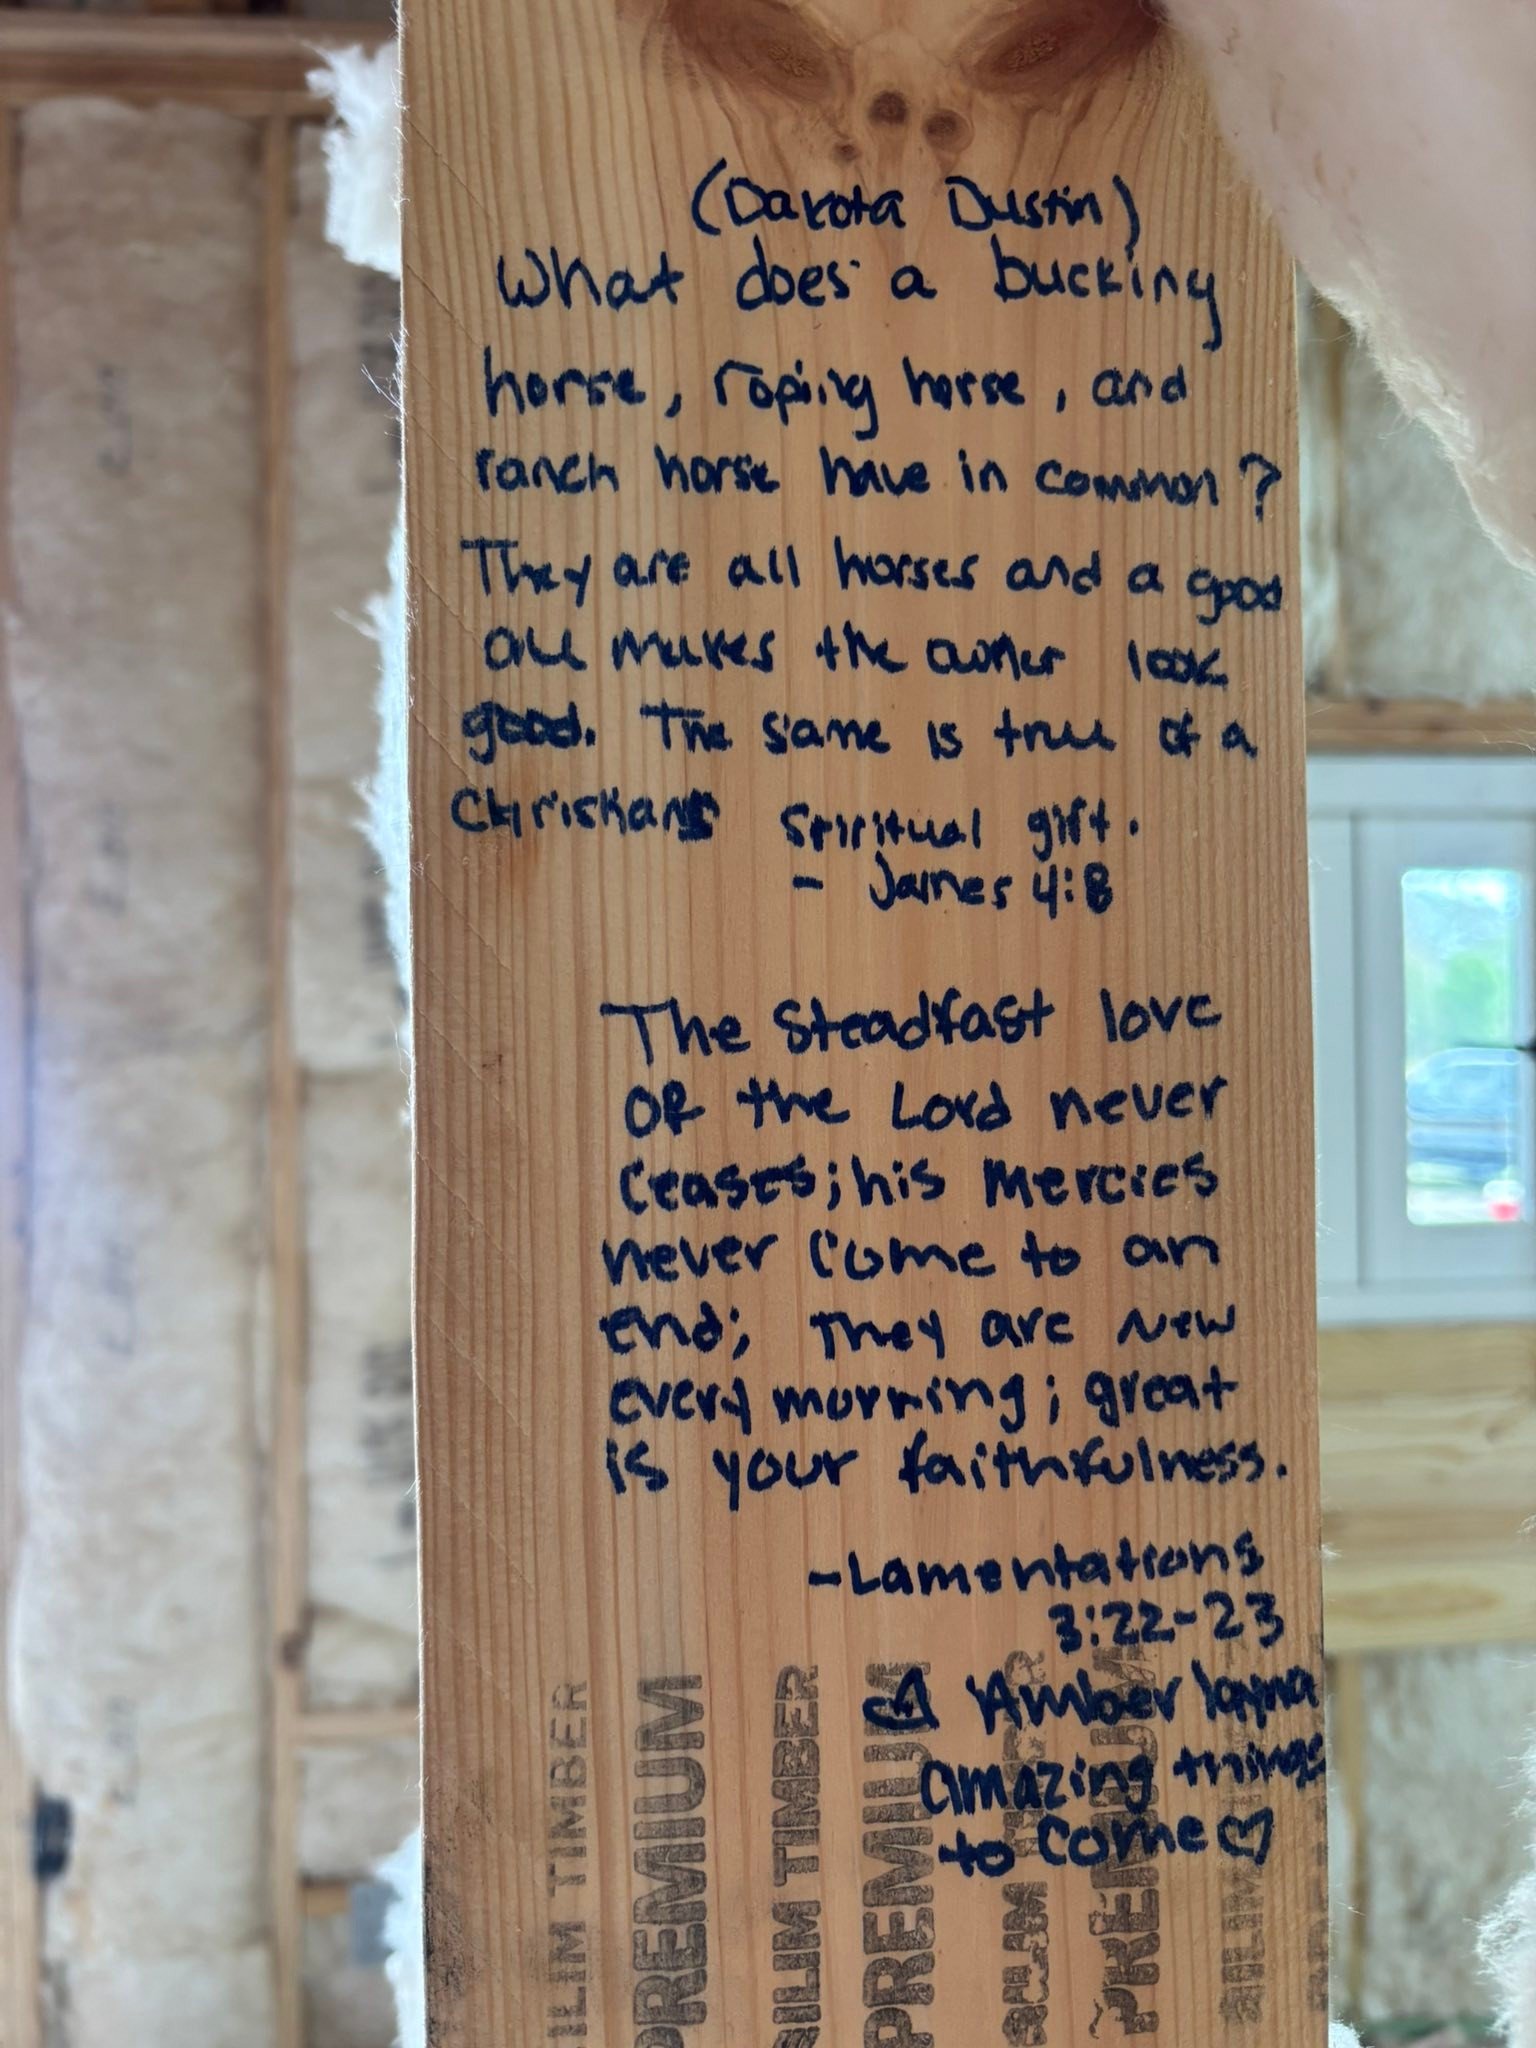 (Dakota Dustin)
What does a bucking
horse, roping horse, and
ranch horse have in common?
They are all horses and a good
all makes the owner look
good. The same is true of a
Christians spiritual gift.
- James 4:8
The steadfast love
of the Lord never
ceases; his mercies
never come to an
end; they are new
every morning; great
is your faithfulness.
-Lamentations
3:22-23
Amber
amazing things
to come♡
TIMBER
PREMIUM
TIMBER
PREMIUM
PREMIUM